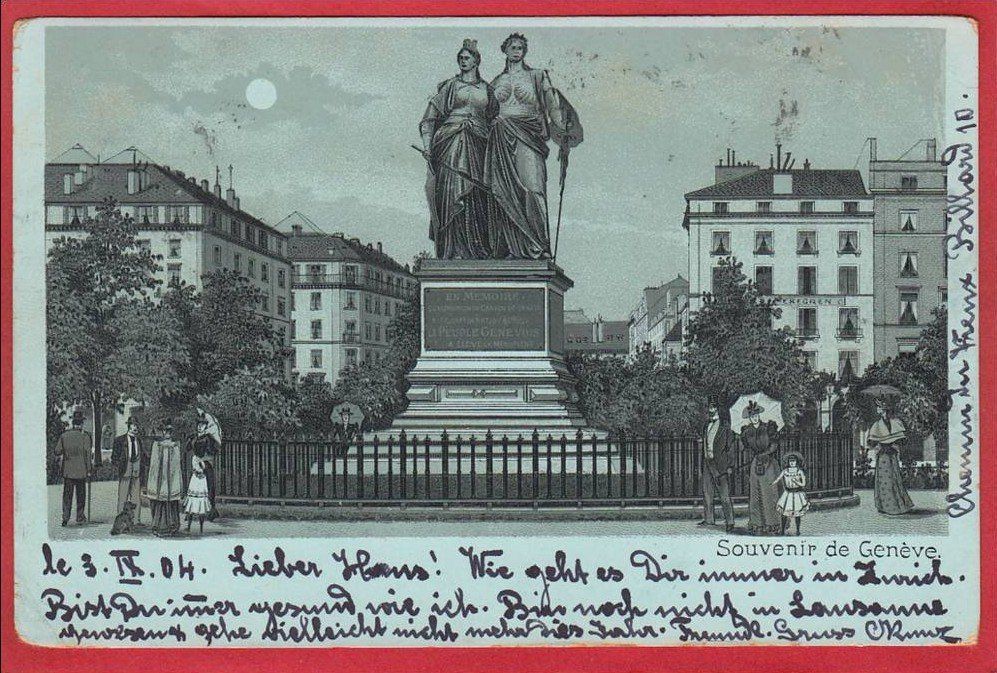 EN MEMOIRE
PEUPLE GENEVOIS
A ELEVE CE MONUMENT
Souvenir de Genève.
le 3. IX. 04. Lieber Hans! Wie geht es Dir immer in Zurich.
Bist Du immer gesund, wie ich. Bin noch nicht in Lausanne
gewesen & gehe vielleicht nicht mehr dies Jahr. Freundl. Gruss
Chemin du Billard 10.